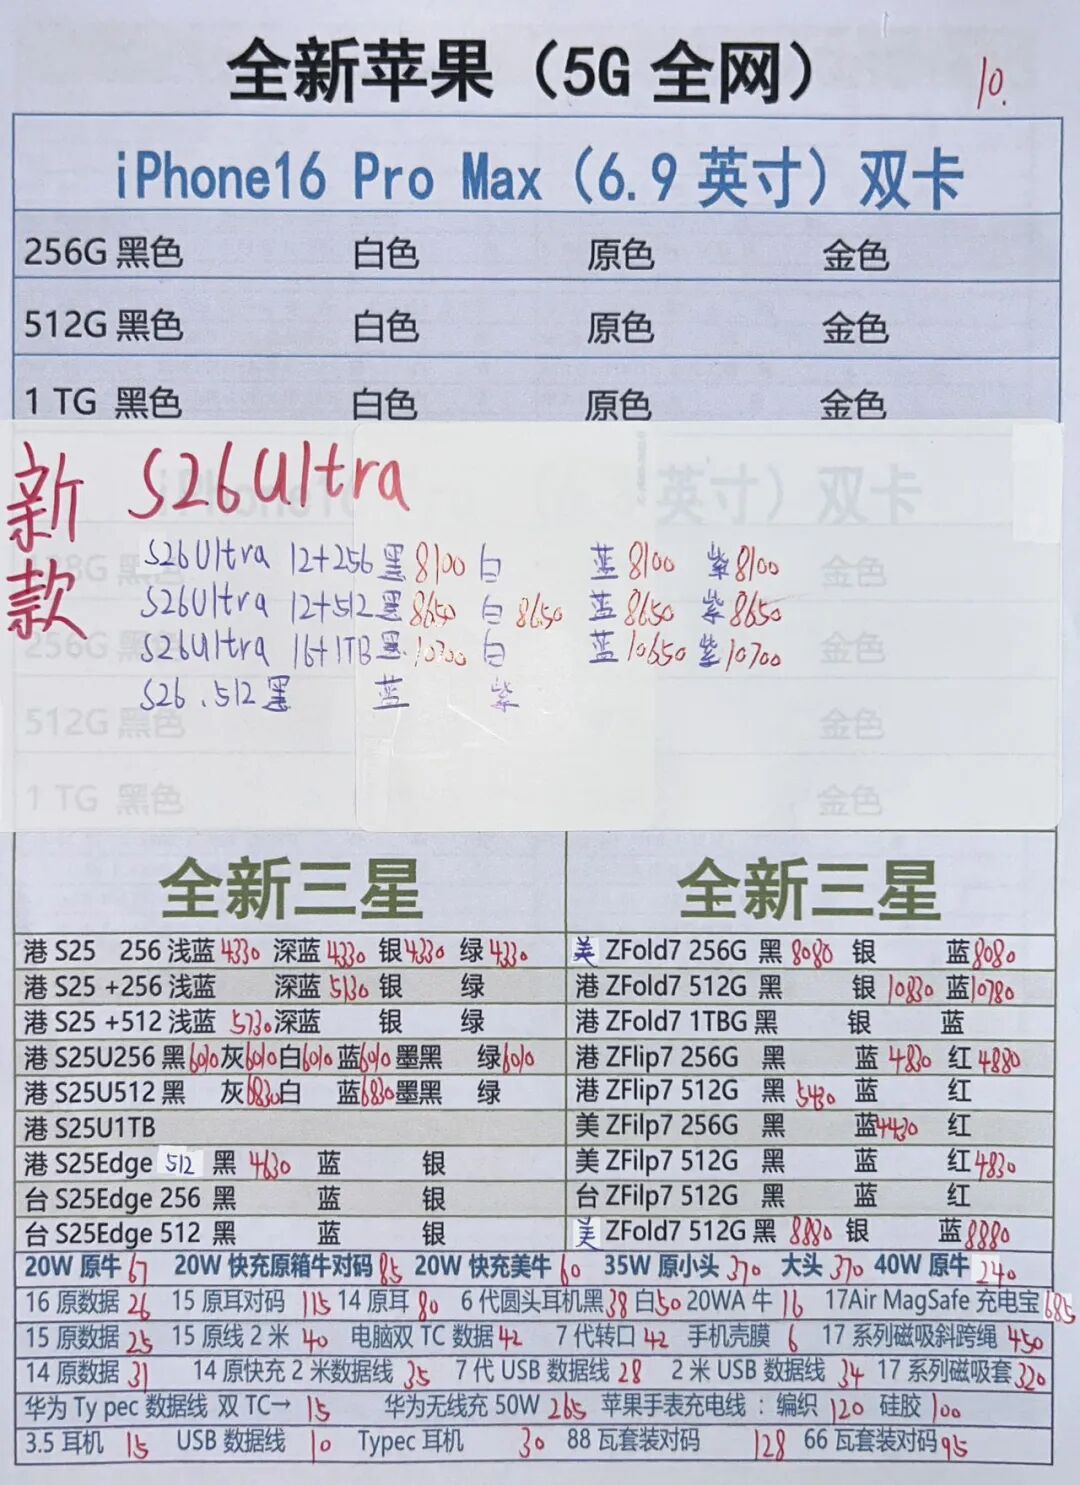 全新苹果（5G 全网）
10.
iPhone16 Pro Max（6.9 英寸）双卡
256G 黑色 白色 原色 金色
512G 黑色 白色 原色 金色
1 TG 黑色 白色 原色 金色
新款 S26Ultra
S26Ultra 12+256 黑 8100 白 蓝 8100 紫 8100
S26Ultra 12+512 黑 8650 白 8650 蓝 8650 紫 8650
S26Ultra 16+1TB 黑 10700 白 蓝 10650 紫 10700
S26.512 黑 蓝 紫
英寸）双卡
128G 黑色 金色
256G 黑色 金色
512G 黑色 金色
1 TG 黑色 金色
全新三星
港 S25 256 浅蓝 4330 深蓝 4330 银 4330 绿 4330
港 S25 +256 浅蓝 深蓝 5130 银 绿
港 S25 +512 浅蓝 5730 深蓝 银 绿
港 S25U256 黑 6010 灰 6010 白 6010 蓝 6010 墨黑 绿 6010
港 S25U512 黑 灰 6830 白 蓝 6830 墨黑 绿
港 S25U1TB
港 S25Edge 512 黑 4630 蓝 银
台 S25Edge 256 黑 蓝 银
台 S25Edge 512 黑 蓝 银
全新三星
美 ZFold7 256G 黑 8080 银 蓝 8080
港 ZFold7 512G 黑 银 10830 蓝 10780
港 ZFold7 1TBG 黑 银 蓝
港 ZFlip7 256G 黑 蓝 4830 红 4880
港 ZFlip7 512G 黑 5430 蓝 红
美 ZFilp7 256G 黑 蓝 4430 红
美 ZFilp7 512G 黑 蓝 红 4830
台 ZFilp7 512G 黑 蓝 红
美 ZFold7 512G 黑 8880 银 蓝 8880
20W 原牛 67 20W 快充原箱牛对码 85 20W 快充美牛 60 35W 原小头 370 大头 370 40W 原牛 240
16 原数据 26 15 原耳对码 115 14 原耳 80 6 代圆头耳机黑 38 白 50 20WA 牛 16 17Air MagSafe 充电宝 685
15 原数据 25 15 原线 2 米 40 电脑双 TC 数据 42 7 代转口 42 手机壳膜 6 17 系列磁吸斜跨绳 450
14 原数据 31 14 原快充 2 米数据线 35 7 代 USB 数据线 28 2 米 USB 数据线 34 17 系列磁吸套 320
华为 Ty pec 数据线 双 TC→ 15 华为无线充 50W 265 苹果手表充电线 ：编织 120 硅胶 100
3.5 耳机 15 USB 数据线 10 Typec 耳机 30 88 瓦套装对码 128 66 瓦套装对码 95